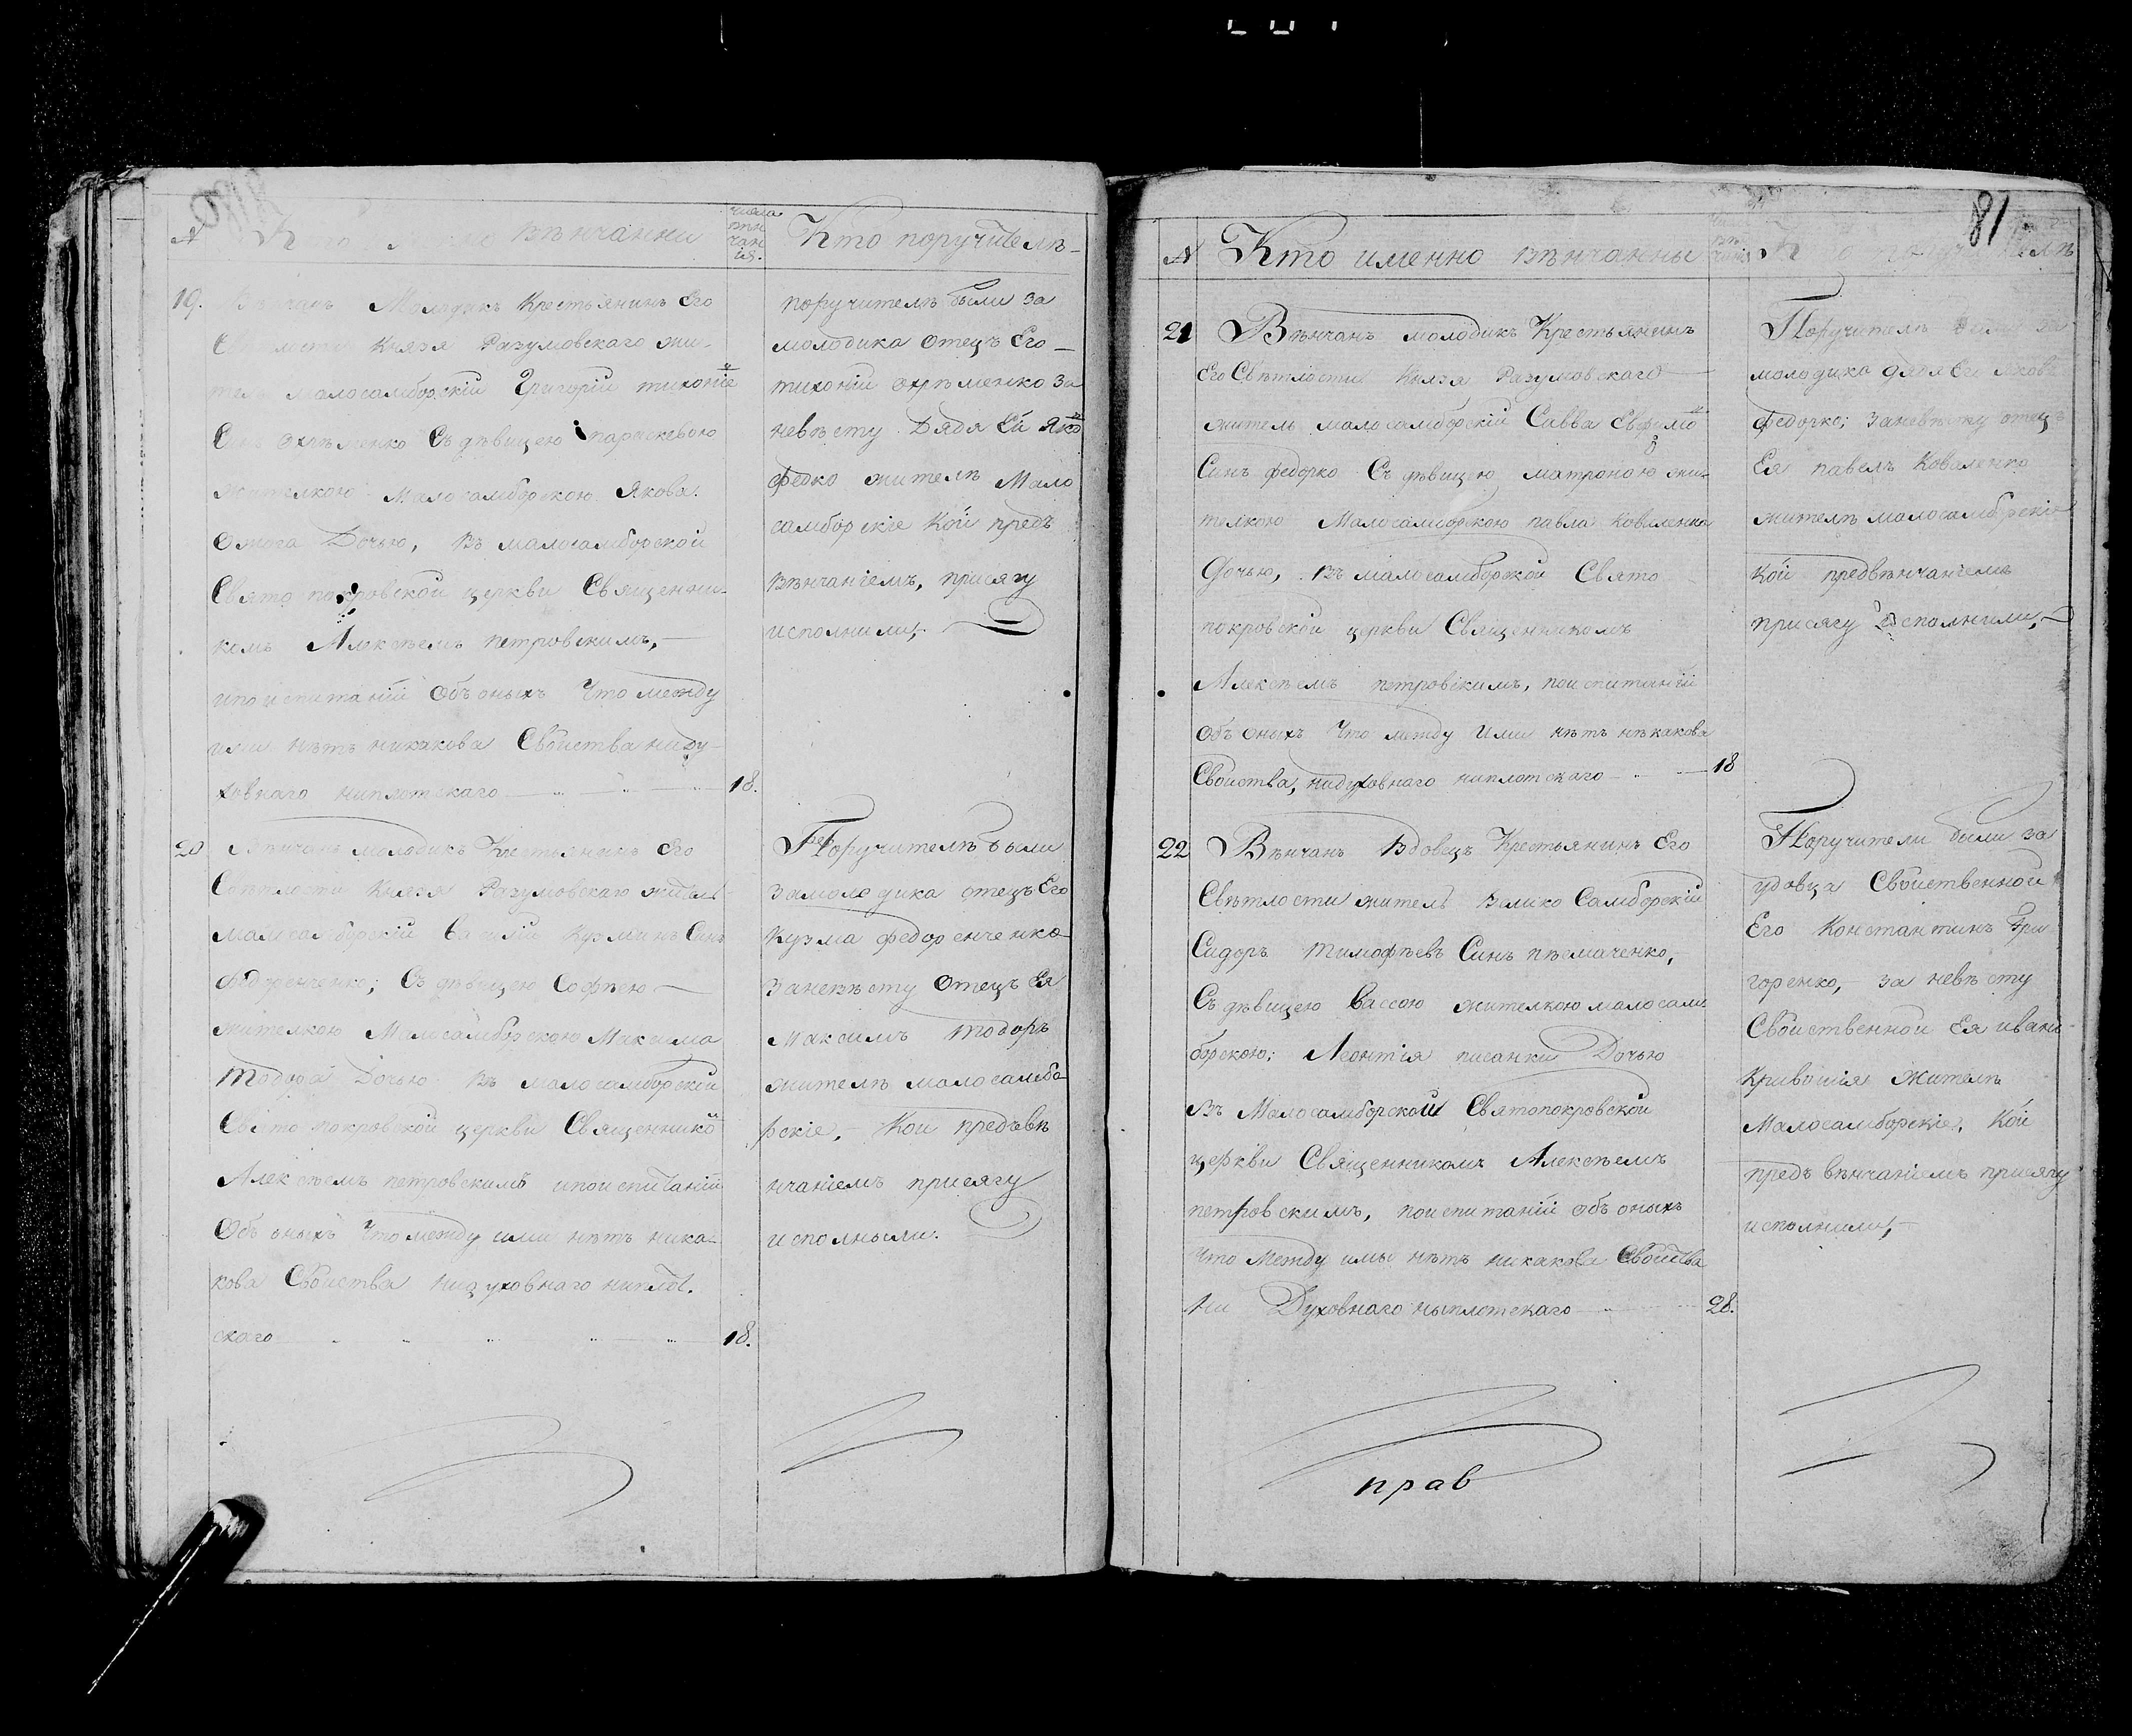 № Кто именно венчанни
числа
вѣн
чан
ія.
Кто поручителѣ
19.
Венчанъ Молодикъ Крестьянинъ Его
Светлости Князя Разумовскаго жи-
тель малосамборскій Григорій тихоніе
Синъ охрѣменко Съ дѣвицею параскевою
жителкою Малосамборскою Якова
Дочью, Въ малосамборской
Свято покровской церкви Священни-
комъ Алексѣемъ петровскимъ,
ипоиспитаній Объ оныхъ Что между
ими нѣтъ никакова Свойства ниду-
ховнаго ниплотскаго
18.
поручителѣ были за
молодика отецъ Его
тихоній охрѣменко за
невѣсту Дядя Ей Яко
Федко жителѣ Мало
самборскіе Кои предъ
вѣнчаніемъ, присягу
исполнили,
20
Вѣнчанъ молодикъ Крестьянинъ Его
Свѣтлости Князя Разумовскаго житель
малосамборскій Василій Кузминъ Синъ
Федоренченко; Съ дѣвицею Софѣею
жителкою Малосамборскою Максима
Тодора Дочью Въ малосамборской
Свято покровской церкви Священнико
Алексѣемъ петровскимъ ипоиспитаній
Объ оныхъ Что между ими нѣтъ ника-
кова Свойства нидуховнаго ниплот.
скаго
18.
Поручителѣ были
замолодика отецъ Его
Кузма федоренченко
заневѣсту Отецъ Ея
Максимъ Тодоръ
жителѣ малосамбо
рскіе. Кои предъвѣ
нчаніемъ присягу
исполныли.
81
№ Кто именно вѣнчанны
21
Вѣнчанъ молодикъ Крестьянинъ
Его Свѣтлости Князя Разумовскаго
житель малосамборскій Савва Евфимо
Синъ федорко Съ дѣвицею матроною жи-
телкою Малосамборскою павла Коваленка
Дочью, Въ малосамборской Свято
покровской церкви Священникомъ
Алексѣемъ петровскимъ, поиспитаній
Объ оныхъ Что между Ими нѣтъ нѣкакова
Свойства, нидуховнаго ниплотскаго
18
Поручителѣ били за
молодика дядя Его Яковъ
федорко; заневѣсту отецъ
Ея павелъ Коваленко
жителѣ малосамборскіе
Кои предвѣнчаніемъ
присягу исполнили,
22
Вѣнчанъ Вдовецъ Крестьянинъ Его
Свѣтлости житель Велико Самборскій
Сидоръ тимофѣевъ Синъ пѣмаченко,
Съ дѣвицею Вассою жителкою малосам
борскою; Леонтія писанки Дочью
Въ Малосамборской Святопокровской
церкви Священникомъ Алексѣемъ
петровскимъ, поиспитаній объ оныхъ
Что Между имы нѣтъ никакова Свойства
ни Духовнаго ныплотскаго
28.
Поручители были за
удовца Свойственной
Его Константинъ Гри
горенко, за невѣсту
Свойственной Ея иванъ
Кривошія Жителѣ
Малосамборскіе, Кои
предъ вѣнчаніемъ присягу
исполнили,
прав